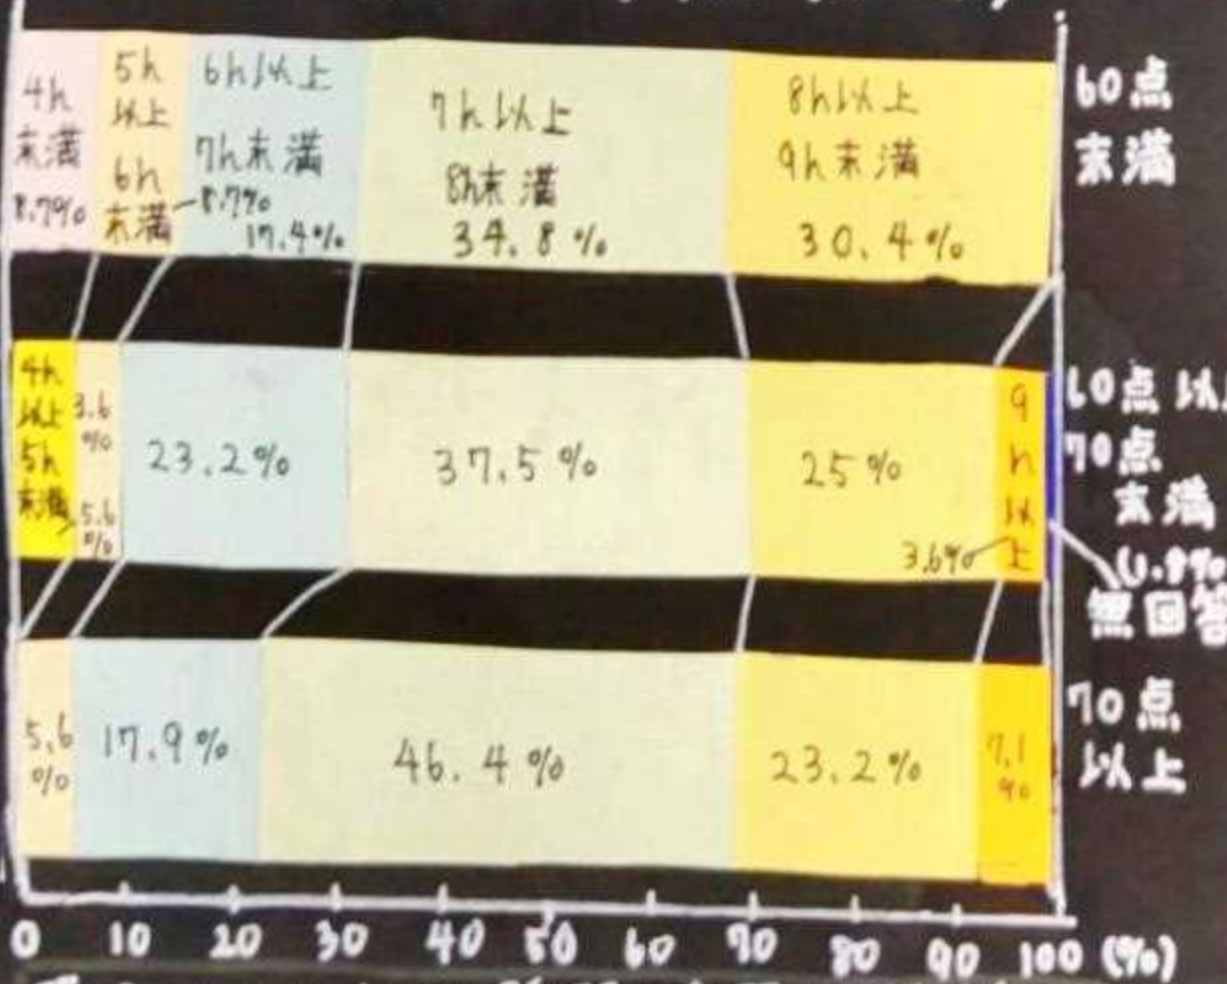 4h
未満
8.7%
5h
以上
6h
未満
8.7%
6h以上
7h未満
17.4%
7h以上
8h未満
34.8%
8h以上
9h未満
30.4%
60点
未満
4h
以上
5h
未満
5.6
%
3.6
%
23.2%
37.5%
25%
9
h
以
上
3.6%
60点以上
70点
未満
(1.8%
無回答
5.6
%
17.9%
46.4%
23.2%
7.1
%
70点
以上
0 10 20 30 40 50 60 70 80 90 100 (%)